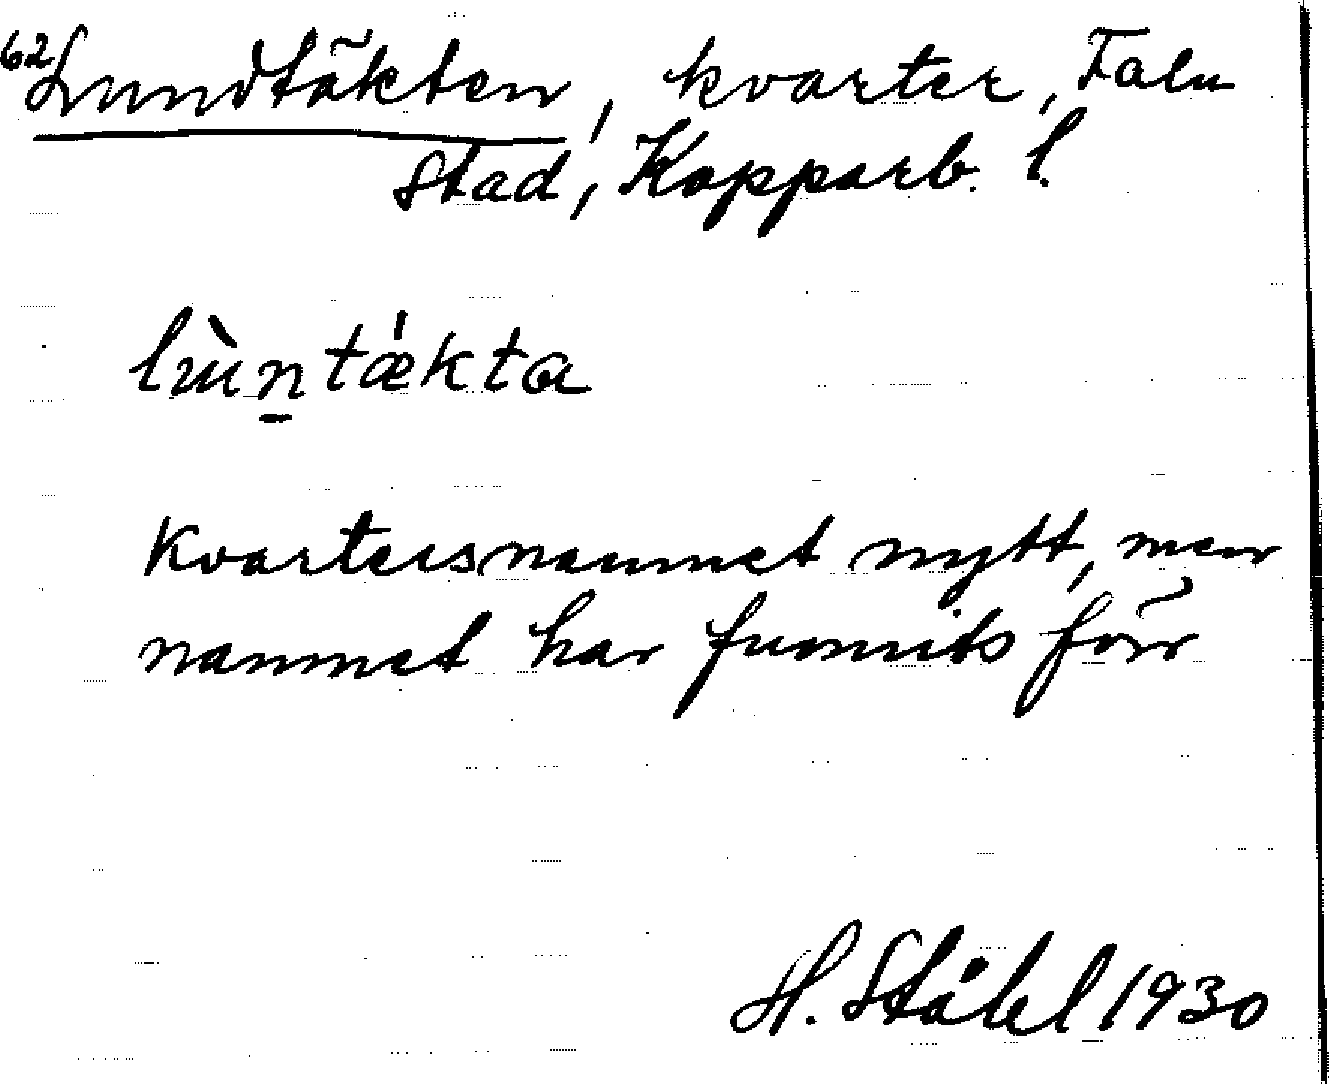 62
Lundtäkten, kvarter, Falu
stad, Kopparb. l.
lùn̲tǽkta
Kvartersnamnet nytt, men
namnet har funnits förr
H. Ståhl 1930